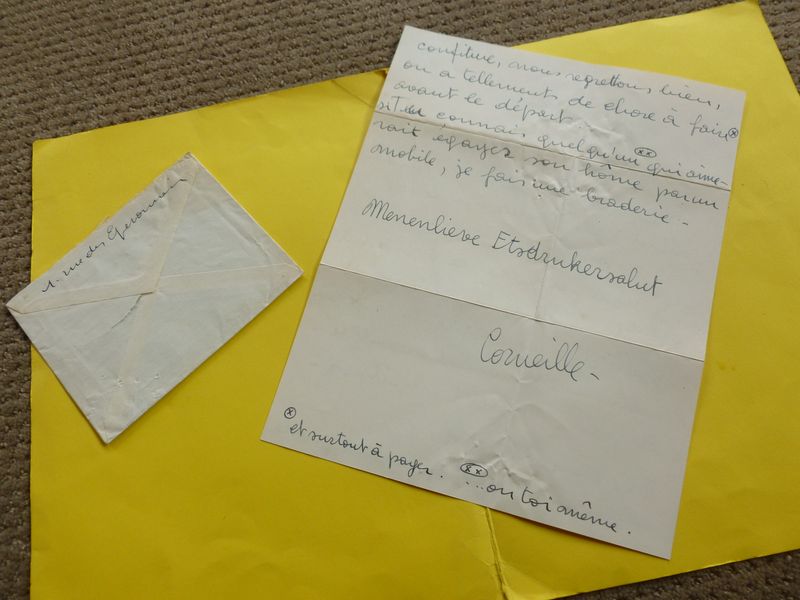 confiture, nous regrettons bien,
on a tellements de chose à faire ⓧ
avant le départ.
si tu connais quelqu'un (xx) qui aime-
rait égayez son hôme par un
mobile, je fais une braderie -
Menenlieve Etsdrukersalut
Corneille -
ⓧ et surtout à payer. (xx) ...ou toi même.
1. rue des Eperonniers